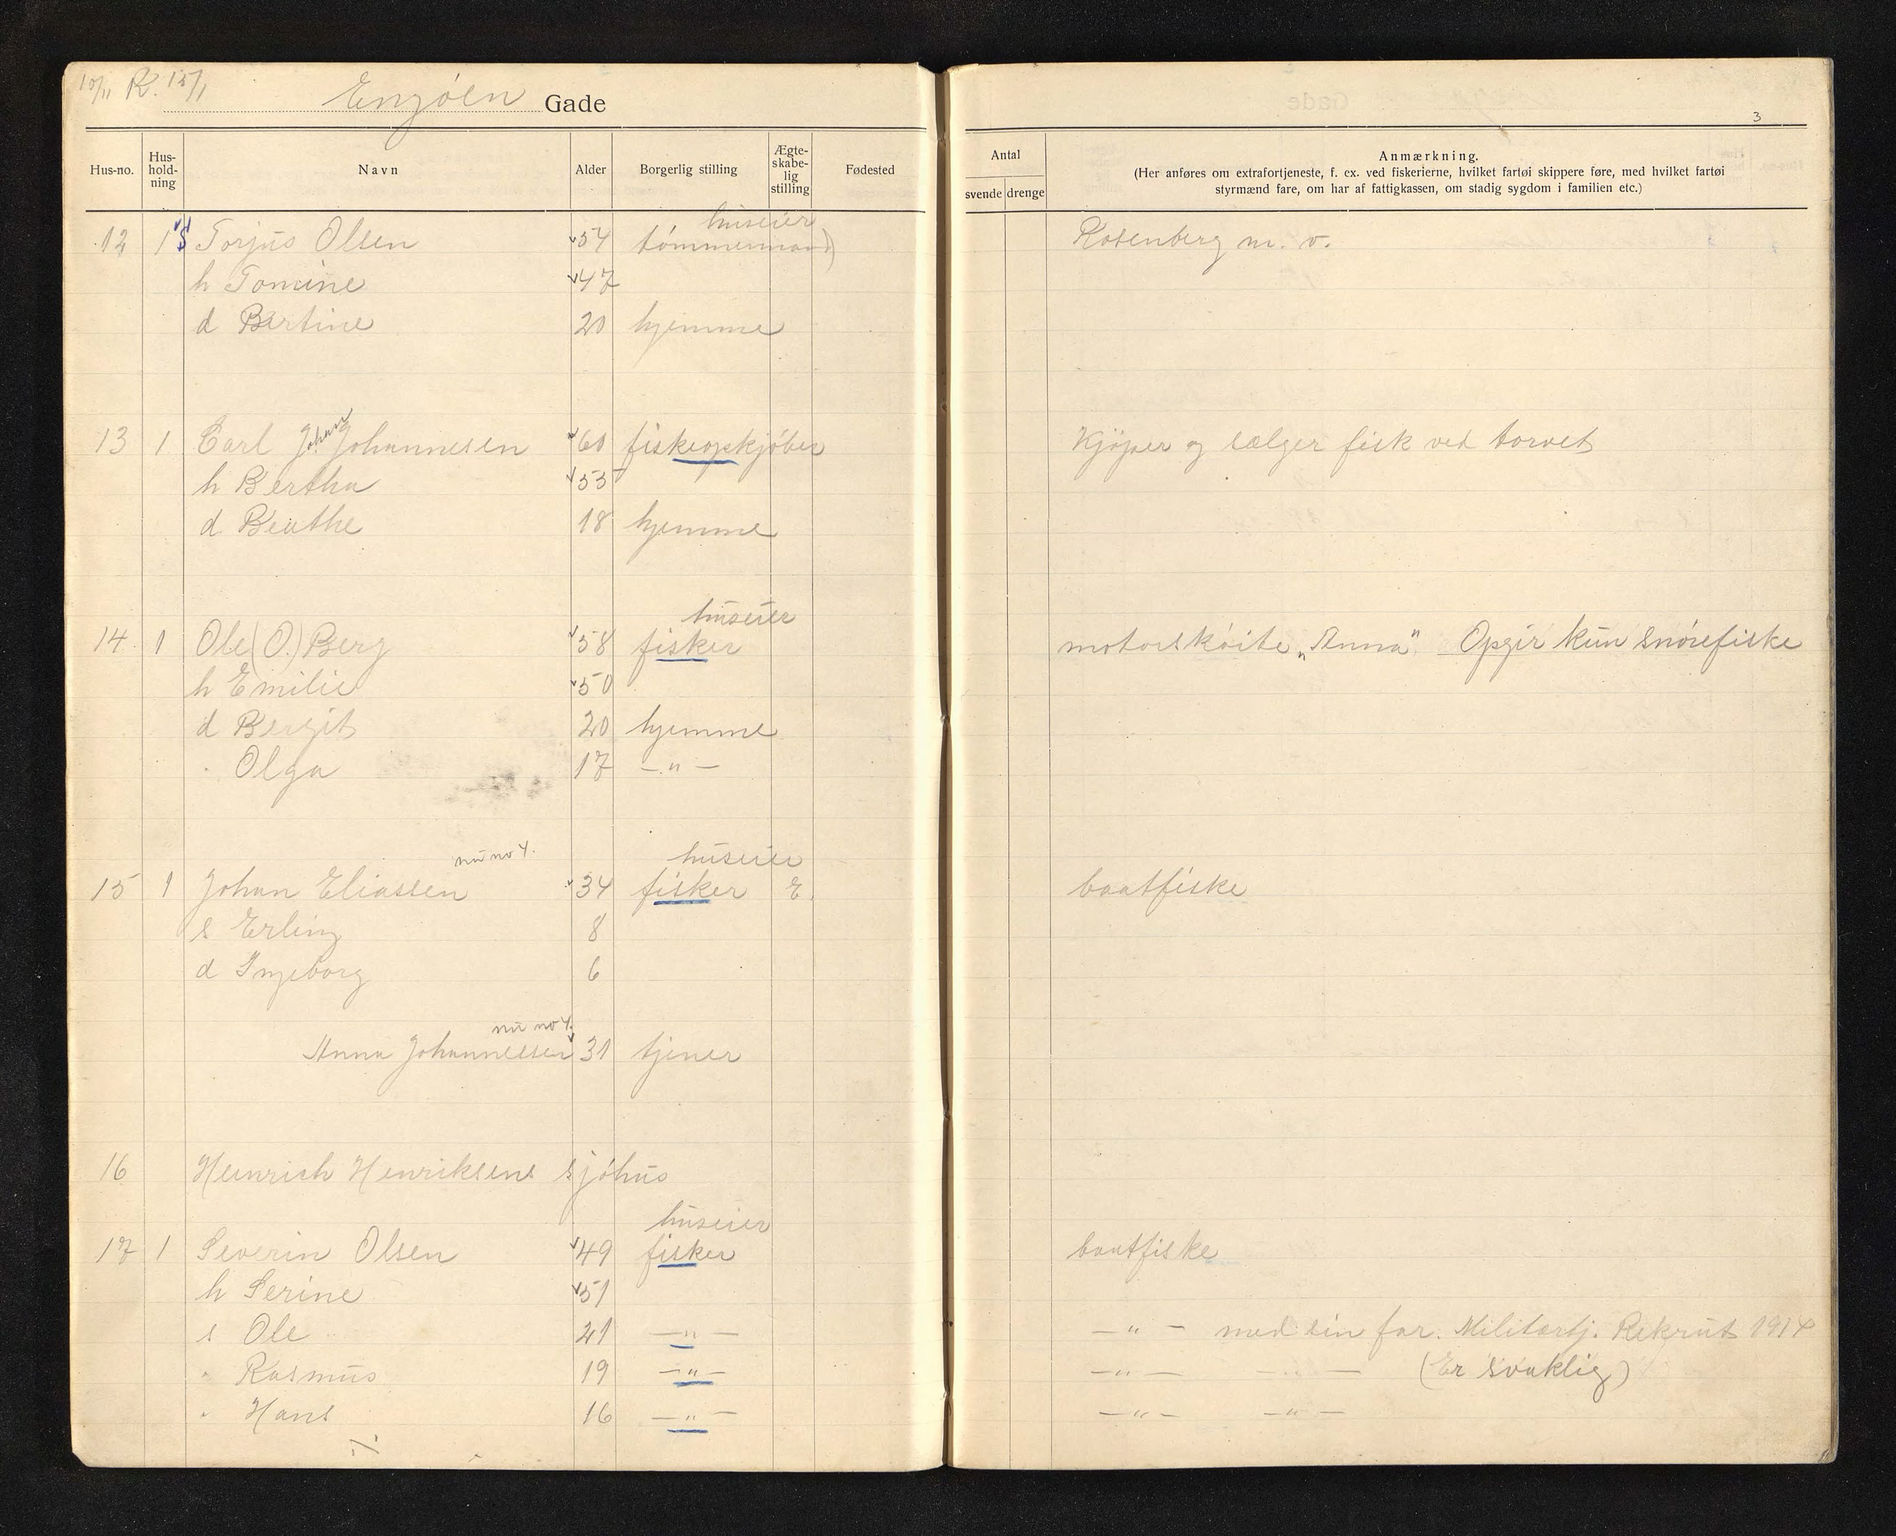 10/11 R. 15/1
Engöen Gade
3
Hus-no. Hus-hold-ning Navn Alder Borgerlig stilling Ægte-skabe-lig stilling Fødested Antal svende drenge Anmærkning.
(Her anføres om extrafortjeneste, f. ex. ved fiskerierne, hvilket fartøi skippere føre, med hvilket fartøi
styrmænd fare, om har af fattigkassen, om stadig sygdom i familien etc.)
huseier
12 1 S Torjus Olsen 54 tömmermand Rosenberg m. v.
h Tomine 47
d Bertine 20 hjemme
Johan
13 1 Carl Johannesen 60 fiskeopkjöber Kjöper og sælger fisk ved torvet
h Bertha 55
d Beathe 18 hjemme
huseier
14 1 Ole (O.) Berg 58 fisker motorsköite „Anna" Opgir kun snörefiske
h Emilie 50
d Bergit 20 hjemme
" Olga 17 — " —
nu no 4. huseier
15 1 Johan Eliassen 34 fisker E. baatfiske
s Erling 8
d Ingeborg 6
nu no 4.
Anna Johannessen 31 tjener
16 Heinrich Henriksens sjöhus
huseier
17 1 Severin Olsen 49 fisker baatfiske
h Serine 51
s Ole 21 — " — — " — med sin far. Militærtj. Rekrut 1914
" Rasmus 19 — " — — " — — " — (Er svaklig)
" Hans 16 — " — — " — — " —